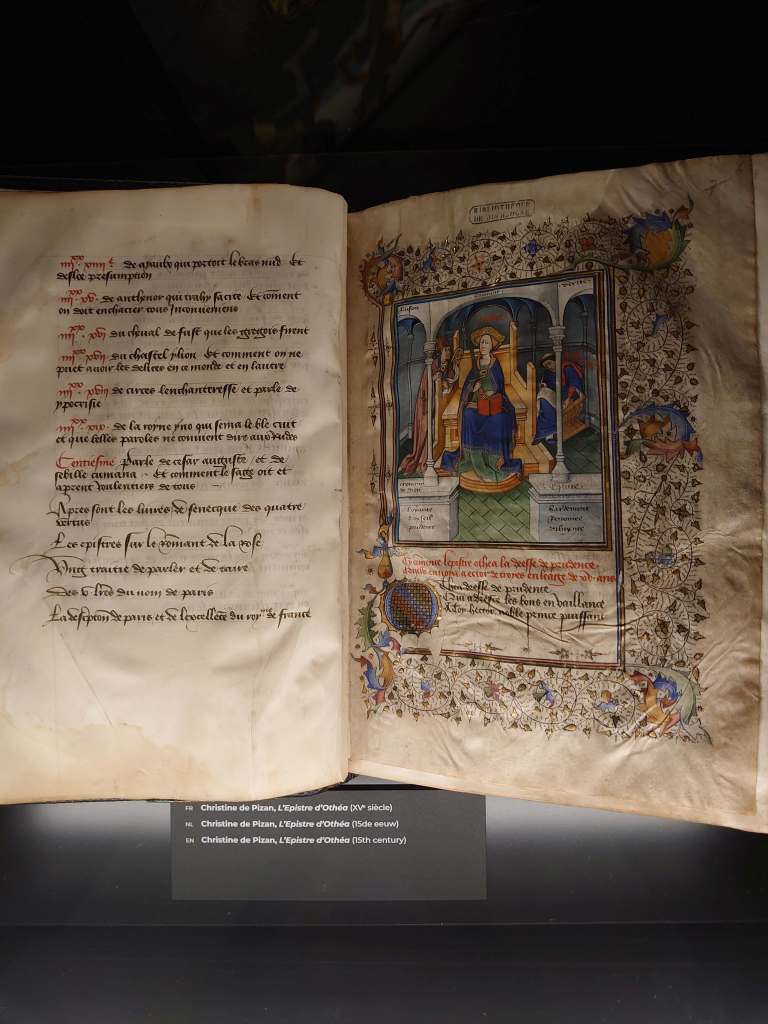 iiii^xx xiiii de aiaulx qui portoit le bras nud Et
desloe presumption
iiii^xx xv de anthenor qui trahy sa cite Et coment
on doit enchacier tous Inconueniens
iiii^xx xvi du cheual de fust que les gregois firent
iiii^xx xvii du chastel ylion Et comment on ne
peut auoir les delices en ce monde et en lautre
iiii^xx xviii de circes lenchanteresse et parle de
ypocrisie
iiii^xx xix de la royne yno qui sema le ble cuit
et que belles paroles ne conuient dire aux Rudes
Centiesme Parle de cesar auguste et de
sebille cumana Et comment le sage oit et
aprent voulentiers de tous
Apres sont les liures de senecque des quatre
vertus
Les epistres sur le Rommant de la rose
Vng traitie de parler et de taire
Des v lres du nom de paris
La descripton de paris et de lexcellece du roye de france
BIBLIOTHEQUE
DE BOURGOGNE
Raison
Cy comence lepistre othea la deesse de prudence
enuoya a ector de troyes en leage de xv ans
Othea deesse de prudence
Qui adresse les bons en vaillance
A toy hector noble prince puissant
FR Christine de Pizan, L'Epistre d'Othéa (XVe siècle)
NL Christine de Pizan, L'Epistre d'Othéa (15de eeuw)
EN Christine de Pizan, L'Epistre d'Othéa (15th century)